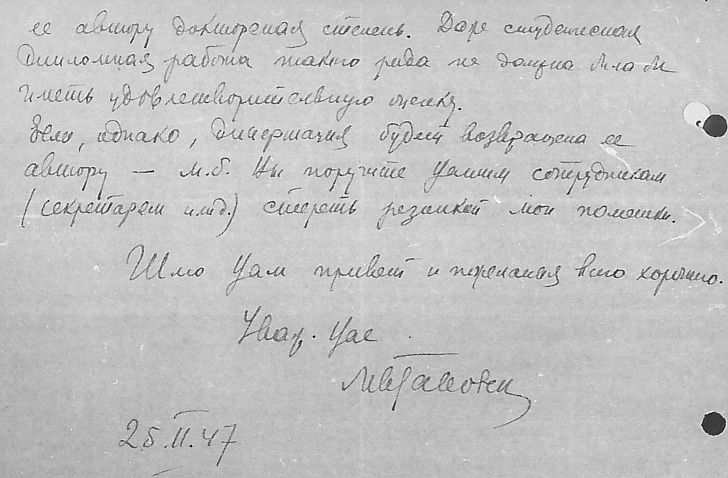 ее автору докторская степень. Даже студенческая
дипломная работа такого рода не должна была бы
иметь удовлетворительную оценку.
Если, однако, диссертация будет возвращена ее
автору — м.б. Вы поручите Вашим сотрудникам
(секретарям и т.д.) стереть резинкой мои пометки.
Шлю Вам привет и пожелания всего хорошего.
Уваж. Вас
25.II.47